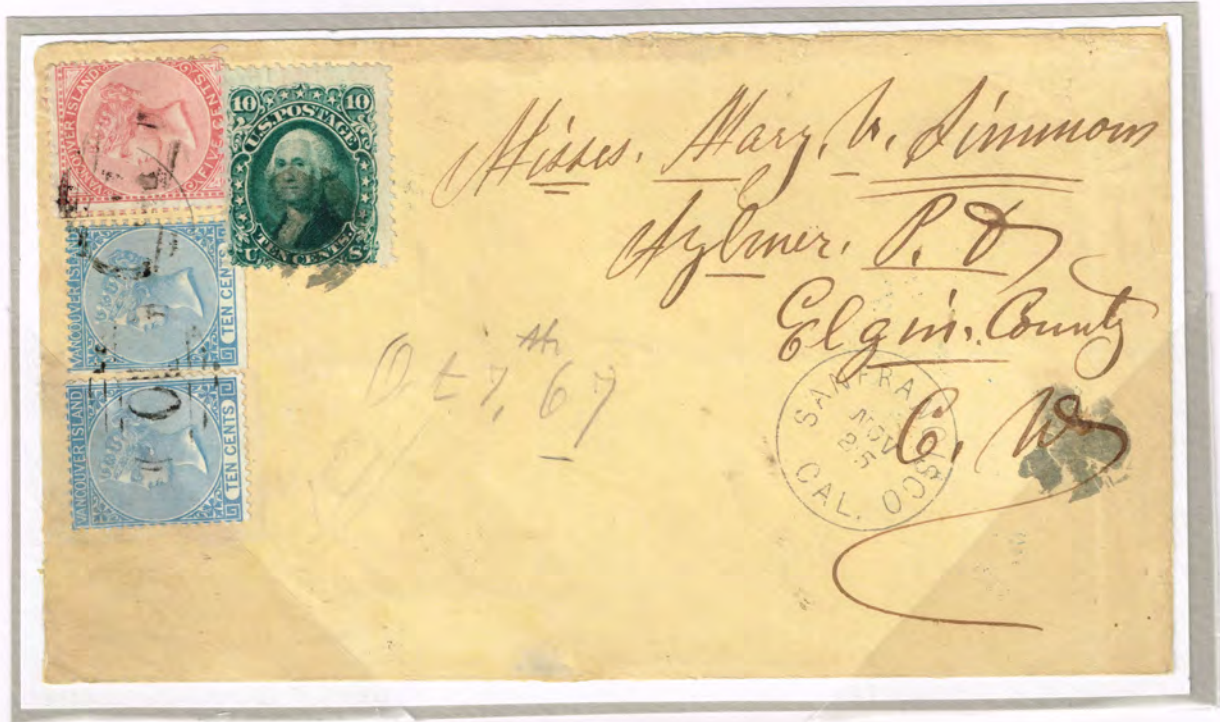 VANCOUVER ISLAND
FIVE CENTS
10 10
U.S. POSTAGE
TEN CENTS
U S
VANCOUVER ISLAND
TEN CENTS
VANCOUVER ISLAND
TEN CENTS
Misses. Mary. V. Simmons
Aylmer. P. O
Elgin. County
C. W
Oct 7,th 67
SAN FRANCISCO
NOV
25
CAL.